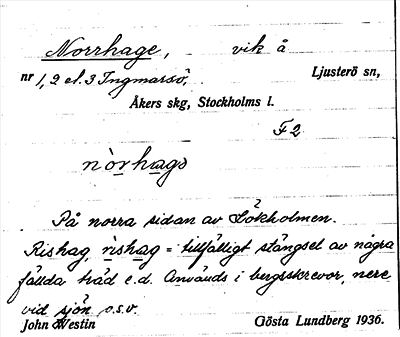 Norrhage, vik å
nr 1, 2 el. 3 Ingmarsö, Ljusterö sn,
Åkers skg, Stockholms l.
F2
nòrhags
På norra sidan av Lökholmen.
Rishag, rishag = tillfälligt stängsel av några
fällda träd e.d. Används i bergsskrevor, nere
vid sjön o.s.v.
John Westin Gösta Lundberg 1936.